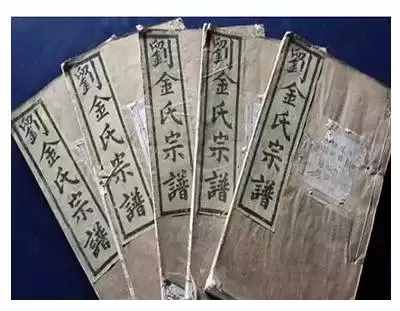 劉金氏宗譜
劉金氏宗譜
劉金氏宗譜
劉金氏宗譜
劉金氏宗譜